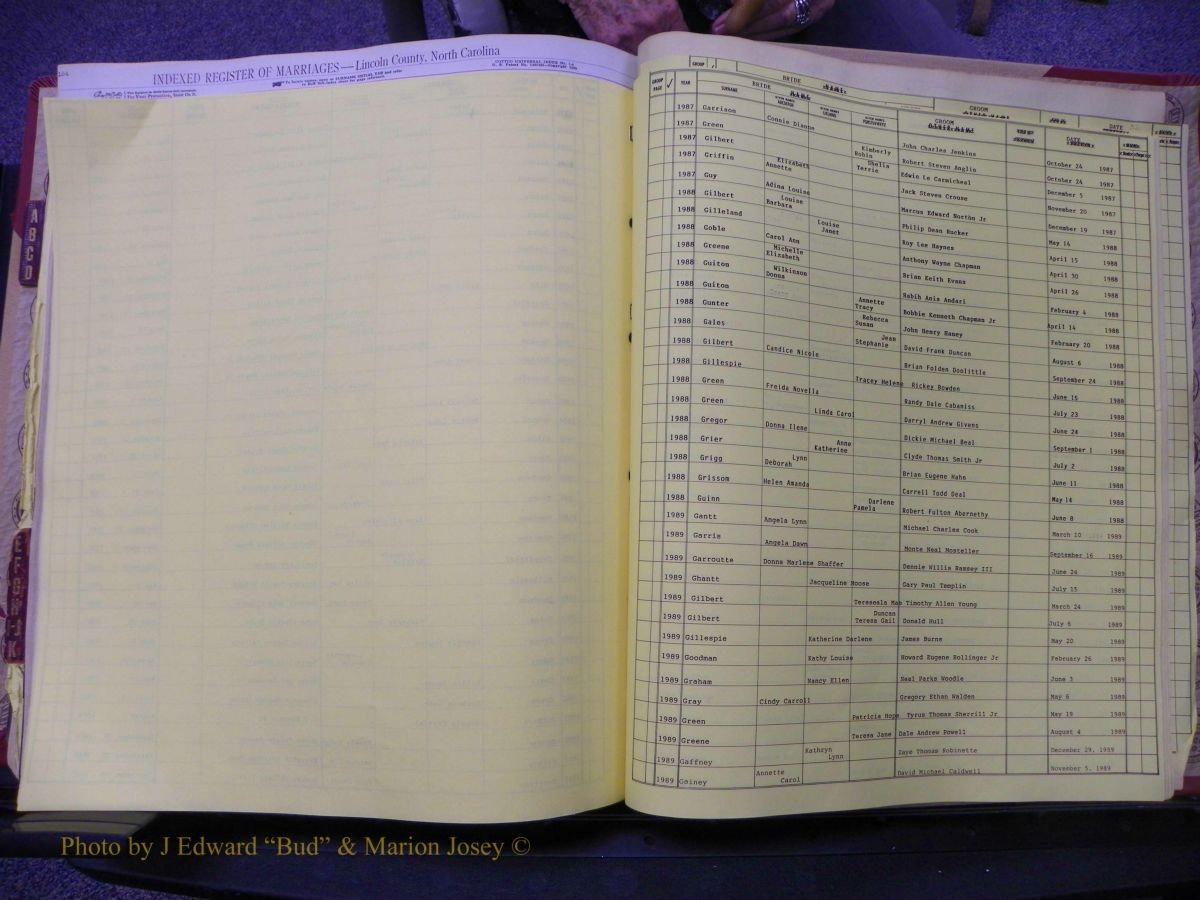 104
INDEXED REGISTER OF MARRIAGES—Lincoln County, North Carolina
GROUP
BRIDE
GROOM
GROUP PAGE ✓ YEAR SURNAME BRIDE GROOM DATE
1987 Garrison Connie Dianne John Charles Jenkins October 24 1987
1987 Green Kimberly Robin Robert Steven Anglin October 24 1987
1987 Gilbert Shelia Terrie Edwin Le Carmicheal December 5 1987
1987 Griffin Elizabeth Annette Jack Steven Crouse November 20 1987
1987 Guy Adina Louise Marcus Edward Norton Jr December 19 1987
1988 Gilbert Louise Barbara Philip Dean Rucker May 14 1988
1988 Gilleland Louise Janet Roy Lee Haynes April 15 1988
1988 Goble Carol Ann Anthony Wayne Chapman April 30 1988
1988 Greene Michelle Elizabeth Brian Keith Evans April 26 1988
1988 Guiton Wilkinson Donna Habib Anis Andari February 4 1988
1988 Guiton Annette Tracy Bobbie Kenneth Chapman Jr April 14 1988
1988 Gunter Rebecca Susan John Henry Haney February 20 1988
1988 Gales Jean Stephanie David Frank Duncan August 6 1988
1988 Gilbert Candice Nicole Brian Folden Doolittle September 24 1988
1988 Gillespie Tracey Helene Rickey Bowden June 15 1988
1988 Green Freida Novella Randy Dale Cabaniss July 23 1988
1988 Green Linda Carol Darryl Andrew Givens June 24 1988
1988 Gregor Donna Ilene Dickie Michael Beal September 1 1988
1988 Grier Anne Katherine Clyde Thomas Smith Jr July 2 1988
1988 Grigg Lynn Deborah Brian Eugene Hahn June 11 1988
1988 Grissom Helen Amanda Carrell Todd Deal May 14 1988
1988 Guinn Darlene Pamela Robert Fulton Abernethy June 8 1988
1989 Gantt Angela Lynn Michael Charles Cook March 10 1989
1989 Garris Angela Dawn Monte Neal Mosteller September 16 1989
1989 Garroutte Donna Marlene Shaffer Dennie Willis Ramsey III June 24 1989
1989 Ghantt Jacqueline Moose Gary Paul Templin July 15 1989
1989 Gilbert Timothy Allen Young March 24 1989
1989 Gilbert Duncan Teresa Gail Donald Hull July 6 1989
1989 Gillespie Katherine Darlene James Burns May 20 1989
1989 Goodman Kathy Louise Howard Eugene Hollinger Jr February 26 1989
1989 Graham Nancy Ellen Neal Parks Woodie June 3 1989
1989 Gray Cindy Carroll Gregory Ethan Walden May 6 1989
1989 Green Patricia Hope Tyrus Thomas Sherrill Jr May 19 1989
1989 Greene Teresa Jane Dale Andrew Powell August 4 1989
1989 Gaffney Kathryn Lynn Thomas Robinette December 29, 1989
1989 Gainey Annette Carol David Michael Caldwell November 5, 1989
A
B
C
D
E
F
G
H
I
J
K
Photo by J Edward “Bud” & Marion Josey ©